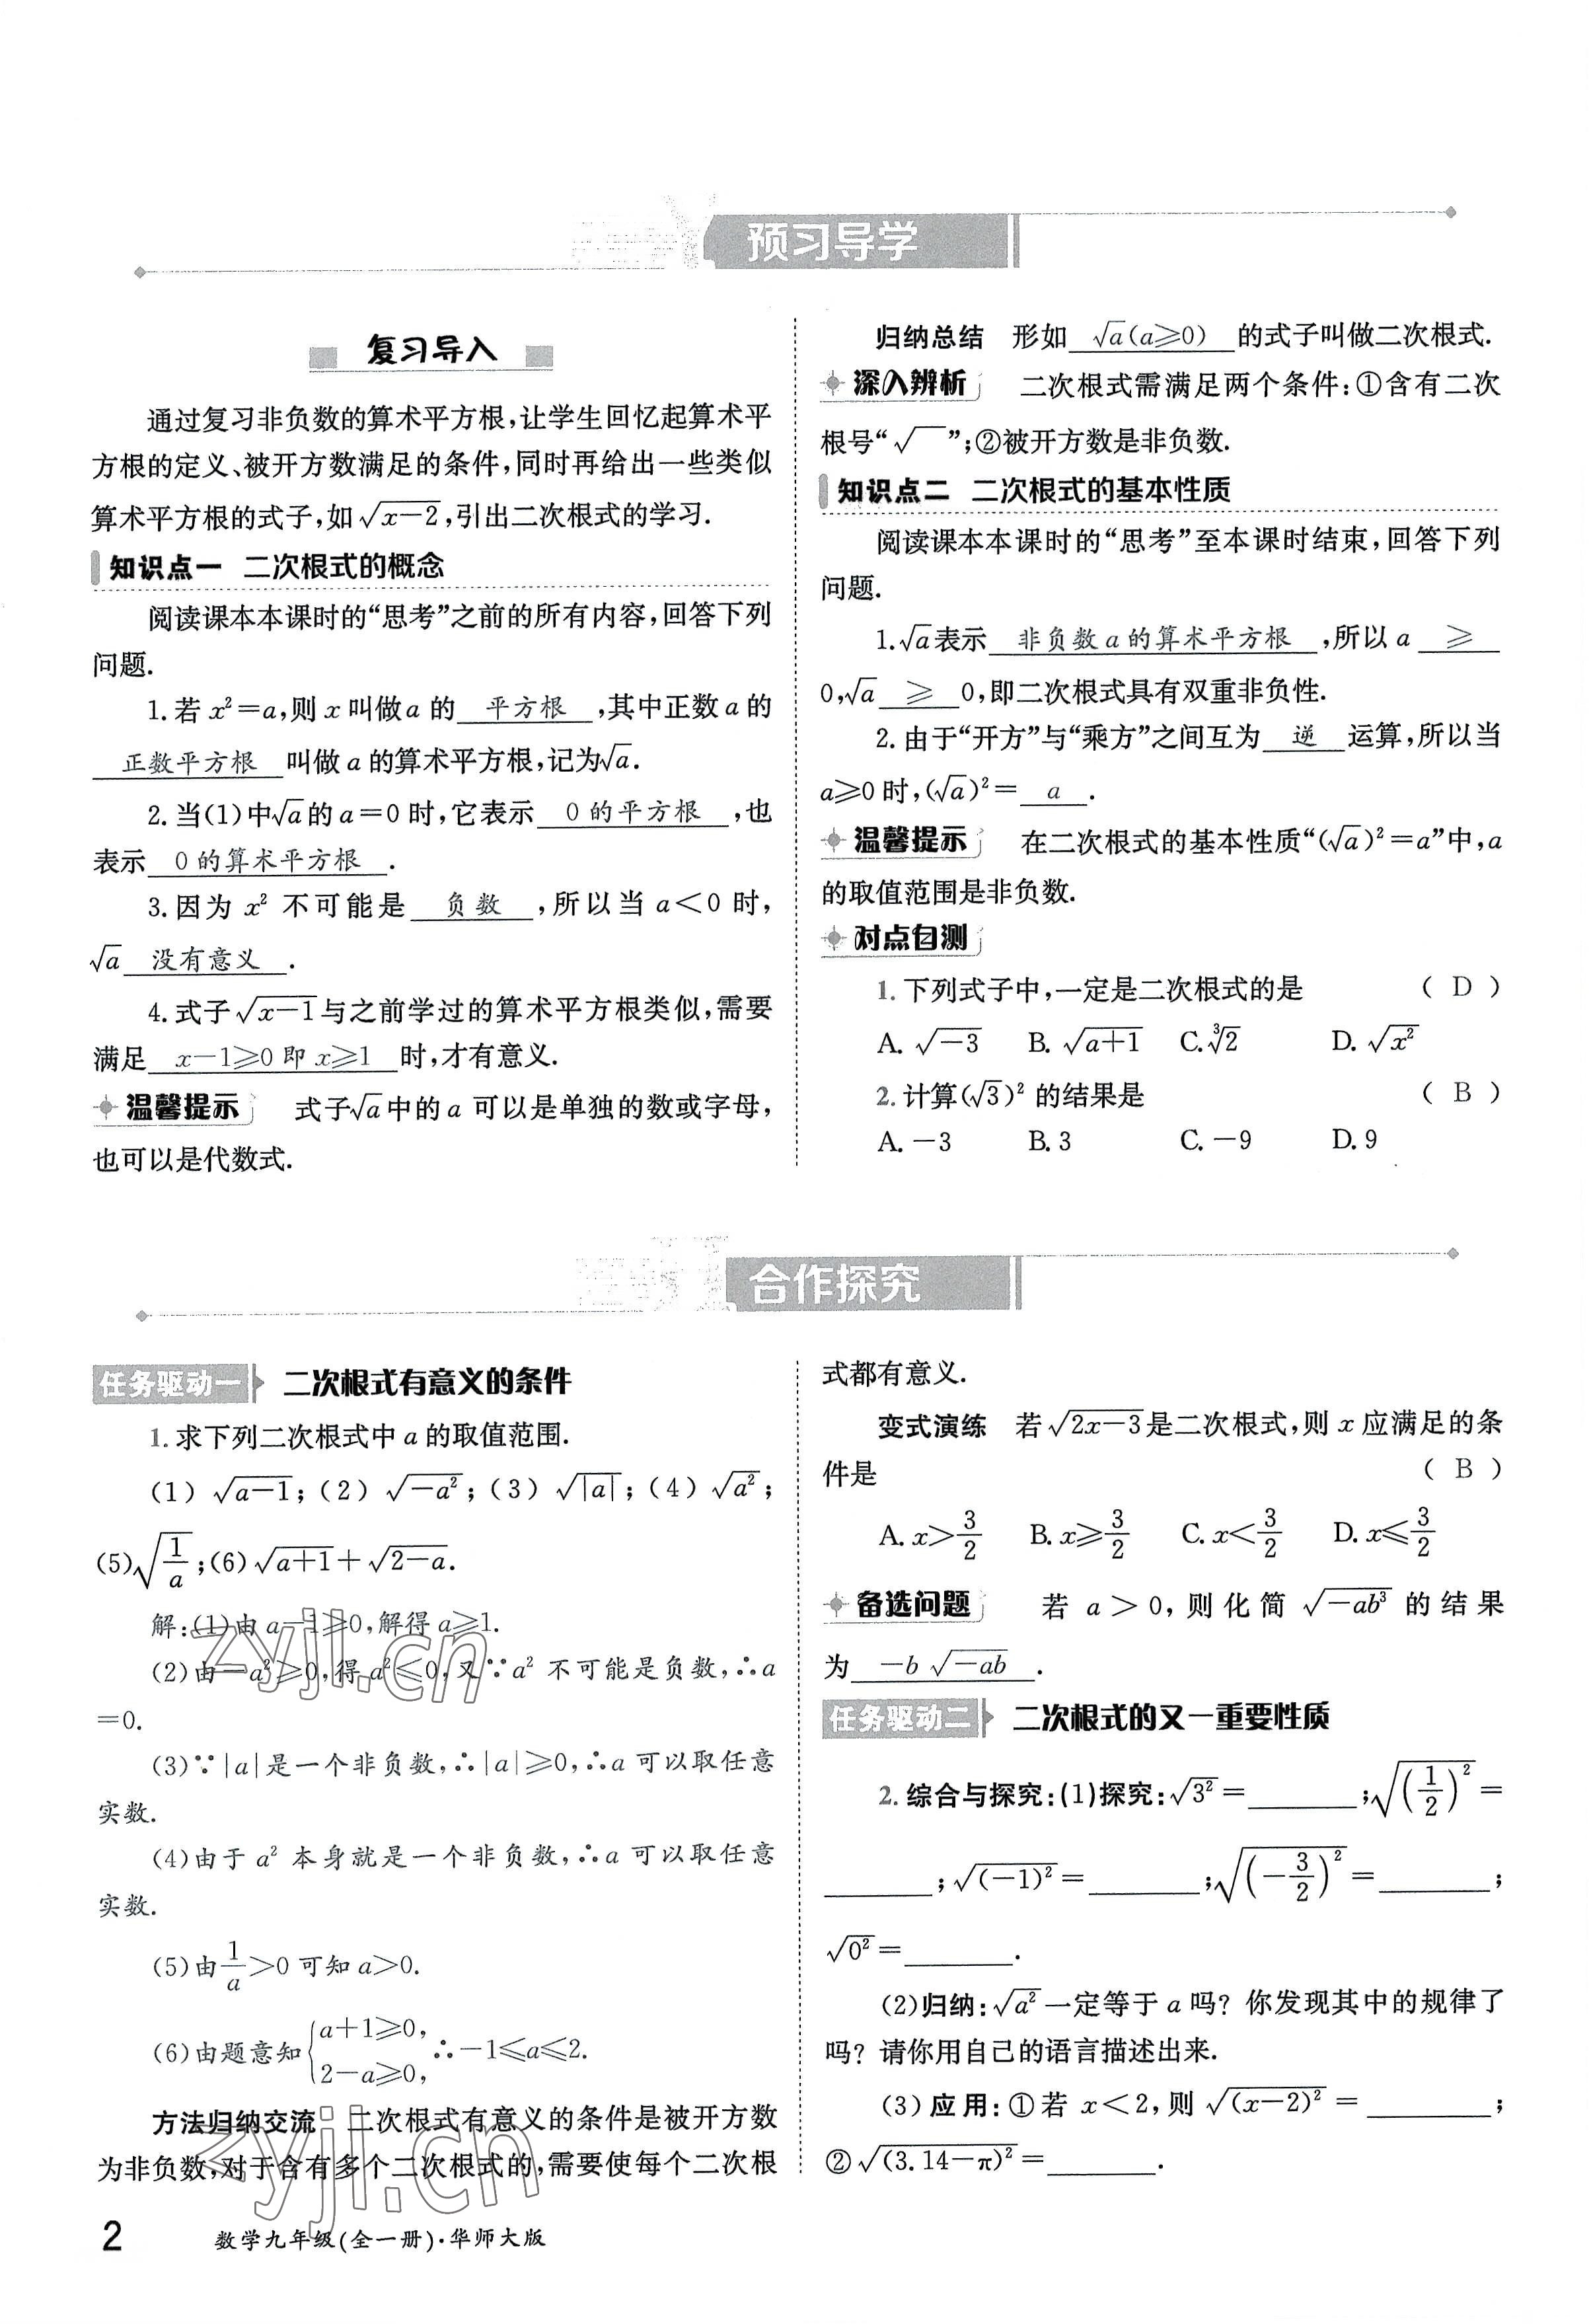 预习导学
复习导入
通过复习非负数的算术平方根,让学生回忆起算术平
方根的定义、被开方数满足的条件,同时再给出一些类似
算术平方根的式子,如√(x-2),引出二次根式的学习.
知识点一 二次根式的概念
阅读课本本课时的“思考”之前的所有内容,回答下列
问题.
1.若 x²=a,则 x 叫做 a 的 平方根 ,其中正数 a 的
正数平方根 叫做 a 的算术平方根,记为√a.
2.当(1)中√a的 a=0 时,它表示 0 的平方根 ,也
表示 0 的算术平方根 .
3.因为 x² 不可能是 负数 ,所以当 a<0 时,
√a 没有意义 .
4.式子√(x-1)与之前学过的算术平方根类似,需要
满足 x-1≥0 即 x≥1 时,才有意义.
温馨提示 式子√a中的 a 可以是单独的数或字母,
也可以是代数式.
归纳总结 形如 √a(a≥0) 的式子叫做二次根式.
深入辨析 二次根式需满足两个条件:①含有二次
根号“√ ”;②被开方数是非负数.
知识点二 二次根式的基本性质
阅读课本本课时的“思考”至本课时结束,回答下列
问题.
1.√a表示 非负数 a 的算术平方根 ,所以 a ≥
0,√a ≥ 0,即二次根式具有双重非负性.
2.由于“开方”与“乘方”之间互为 逆 运算,所以当
a≥0 时,(√a)²= a .
温馨提示 在二次根式的基本性质“(√a)²=a”中,a
的取值范围是非负数.
对点自测
1.下列式子中,一定是二次根式的是 ( D )
A.√(-3) B.√(a+1) C.∛2 D.√(x²)
2.计算(√3)² 的结果是 ( B )
A.-3 B.3 C.-9 D.9
合作探究
任务驱动一 二次根式有意义的条件
1.求下列二次根式中 a 的取值范围.
(1) √(a-1);(2) √(-a²);(3) √|a|;(4) √(a²);
(5)√(1/a);(6)√(a+1)+√(2-a).
解:(1)由 a-1≥0,解得 a≥1.
(2)由-a²≥0,得 a²≤0,又∵a² 不可能是负数,∴a
=0.
(3)∵|a|是一个非负数,∴|a|≥0,∴a 可以取任意
实数.
(4)由于 a² 本身就是一个非负数,∴a 可以取任意
实数.
(5)由1/a>0 可知 a>0.
(6)由题意知{a+1≥0, 2-a≥0, ∴-1≤a≤2.
方法归纳交流 二次根式有意义的条件是被开方数
为非负数,对于含有多个二次根式的,需要使每个二次根
式都有意义.
变式演练 若√(2x-3)是二次根式,则 x 应满足的条
件是 ( B )
A.x>3/2 B.x≥3/2 C.x<3/2 D.x≤3/2
备选问题 若 a>0,则化简 √(-ab³) 的结果
为 -b √(-ab) .
任务驱动二 二次根式的又一重要性质
2.综合与探究:(1)探究:√(3²)=______;√((1/2)²)=
______;√((-1)²)=______;√((-3/2)²)=______;
√(0²)=______.
(2)归纳:√(a²)一定等于 a 吗?你发现其中的规律了
吗?请你用自己的语言描述出来.
(3)应用:①若 x<2,则 √((x-2)²)=______;
②√((3.14-π)²)=______.
zyjl.cn
zyjl.cn
2 数学九年级(全一册)·华师大版